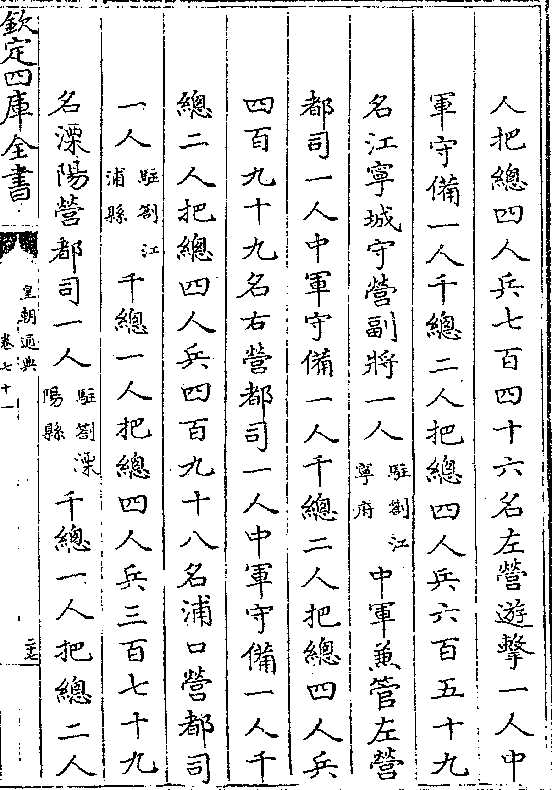 人把總四人兵七百四十六名左營遊擊一人中
軍守備一人千總二人把總四人兵六百五十九
名江寧城守營副將一人駐劄江寧府中軍兼管左營
都司一人中軍守備一人千總二人把總四人兵
四百九十九名右營都司一人中軍守備一人千
總二人把總四人兵四百九十八名浦口營都司
一人駐劄江浦縣千總一人把總四人兵三百七十九
名溧陽營都司一人駐劄溧陽縣千總一人把總二人
欽定四庫全書
皇朝通典
卷七十一